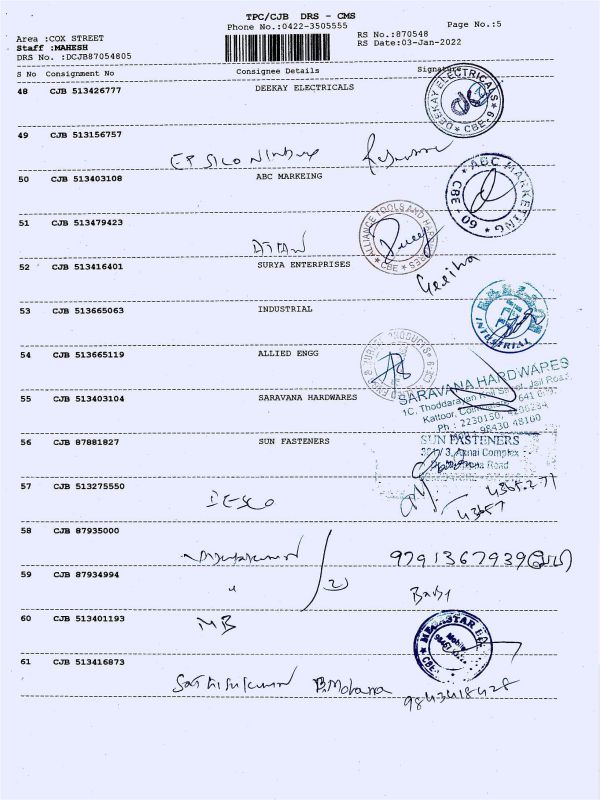 TPC/CJB DRS - CMS
Phone No.:0422-3505555
Page No.:5
Area :COX STREET
RS No.:870548
Staff :MAHESH
RS Date:03-Jan-2022
DRS No. :DCJB87054805
S No Consignment No Consignee Details Signature
48 CJB 513426777 DEEKAY ELECTRICALS
DEEKAY ELECTRICALS * CBE-9 *
49 CJB 513156757
50 CJB 513403108 ABC MARKEING
* ABC MARKETING * CBE - 09
51 CJB 513479423
ALLIANCE TOOLS AND HARDWARES * CBE *
52 CJB 513416401 SURYA ENTERPRISES
Geetha
53 CJB 513665063 INDUSTRIAL
INDUSTRIAL
54 CJB 513665119 ALLIED ENGG
55 CJB 513403104 SARAVANA HARDWARES
SARAVANA HARDWARES
1C, Thoddarayan Koil Street, Jail Road,
Kattoor, 641
Ph : 2230150,
98430 48160
56 CJB 87881827 SUN FASTENERS
SUN FASTENERS
Complex
Road
57 CJB 513275550
IESCO
4365.277
43657
58 CJB 87935000
9791367939
59 CJB 87934994
"
2
Baby
60 CJB 513401193
MB
61 CJB 513416873
Sathishkumar B.Mohana 9843418428